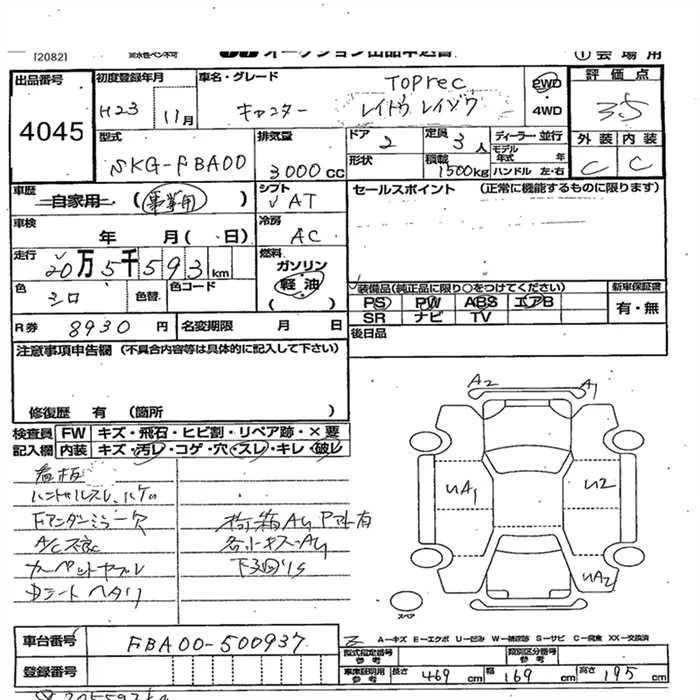 [2082]
オークション出品申込書
①会場用
出品番号
4045
初度登録年月
H23 11月
車名・グレード
TOPrec
キャンター レイトウレイゾウ
2WD
4WD
評価点
3.5
外装 内装
C C
型式
SKG-FBA00
排気量
3000CC
ドア
2
形状
定員
3人
積載
1500kg
ディーラー・並行
モデル年式 年
ハンドル 左・右
車歴
自家用 (事業用)
シフト
AT
セールスポイント (正常に機能するものに限ります)
車検
年 月( ・ 日)
冷房
AC
走行
20万5千593km
燃料
ガソリン
軽油
( )
色
シロ
色替
色コード
装備品(純正品に限り○をつけてください)
PS PW ABS エアB
SR ナビ TV
新車保証書
有・無
R券 8930円
名変期限 月 日
後日品
注意事項申告欄 (不具合内容等は具体的に記入して下さい)
修復歴 有 (箇所 )
検査員記入欄
FW キズ・飛石・ヒビ割・リペア跡・×要
内装 キズ・汚レ・コゲ・穴・スレ・キレ・破レ
看板
ハンドルスレ、ハゲ
Fアンダーミラー欠
A/C不良
カーペットヤブレ
シートヘタリ
各小キズ・AU
下廻りS
A2
A1
UA1
U2
UA2
スペア
A-キズ E-エクボ U-凹み W-補修跡 S-サビ C-腐食 XX-交換済
車台番号 FBA00-500937
登録番号
型式指定番号 参考
類別区分番号 参考
車庫証明用 参考
長さ 469cm 幅 169cm 高さ 195cm